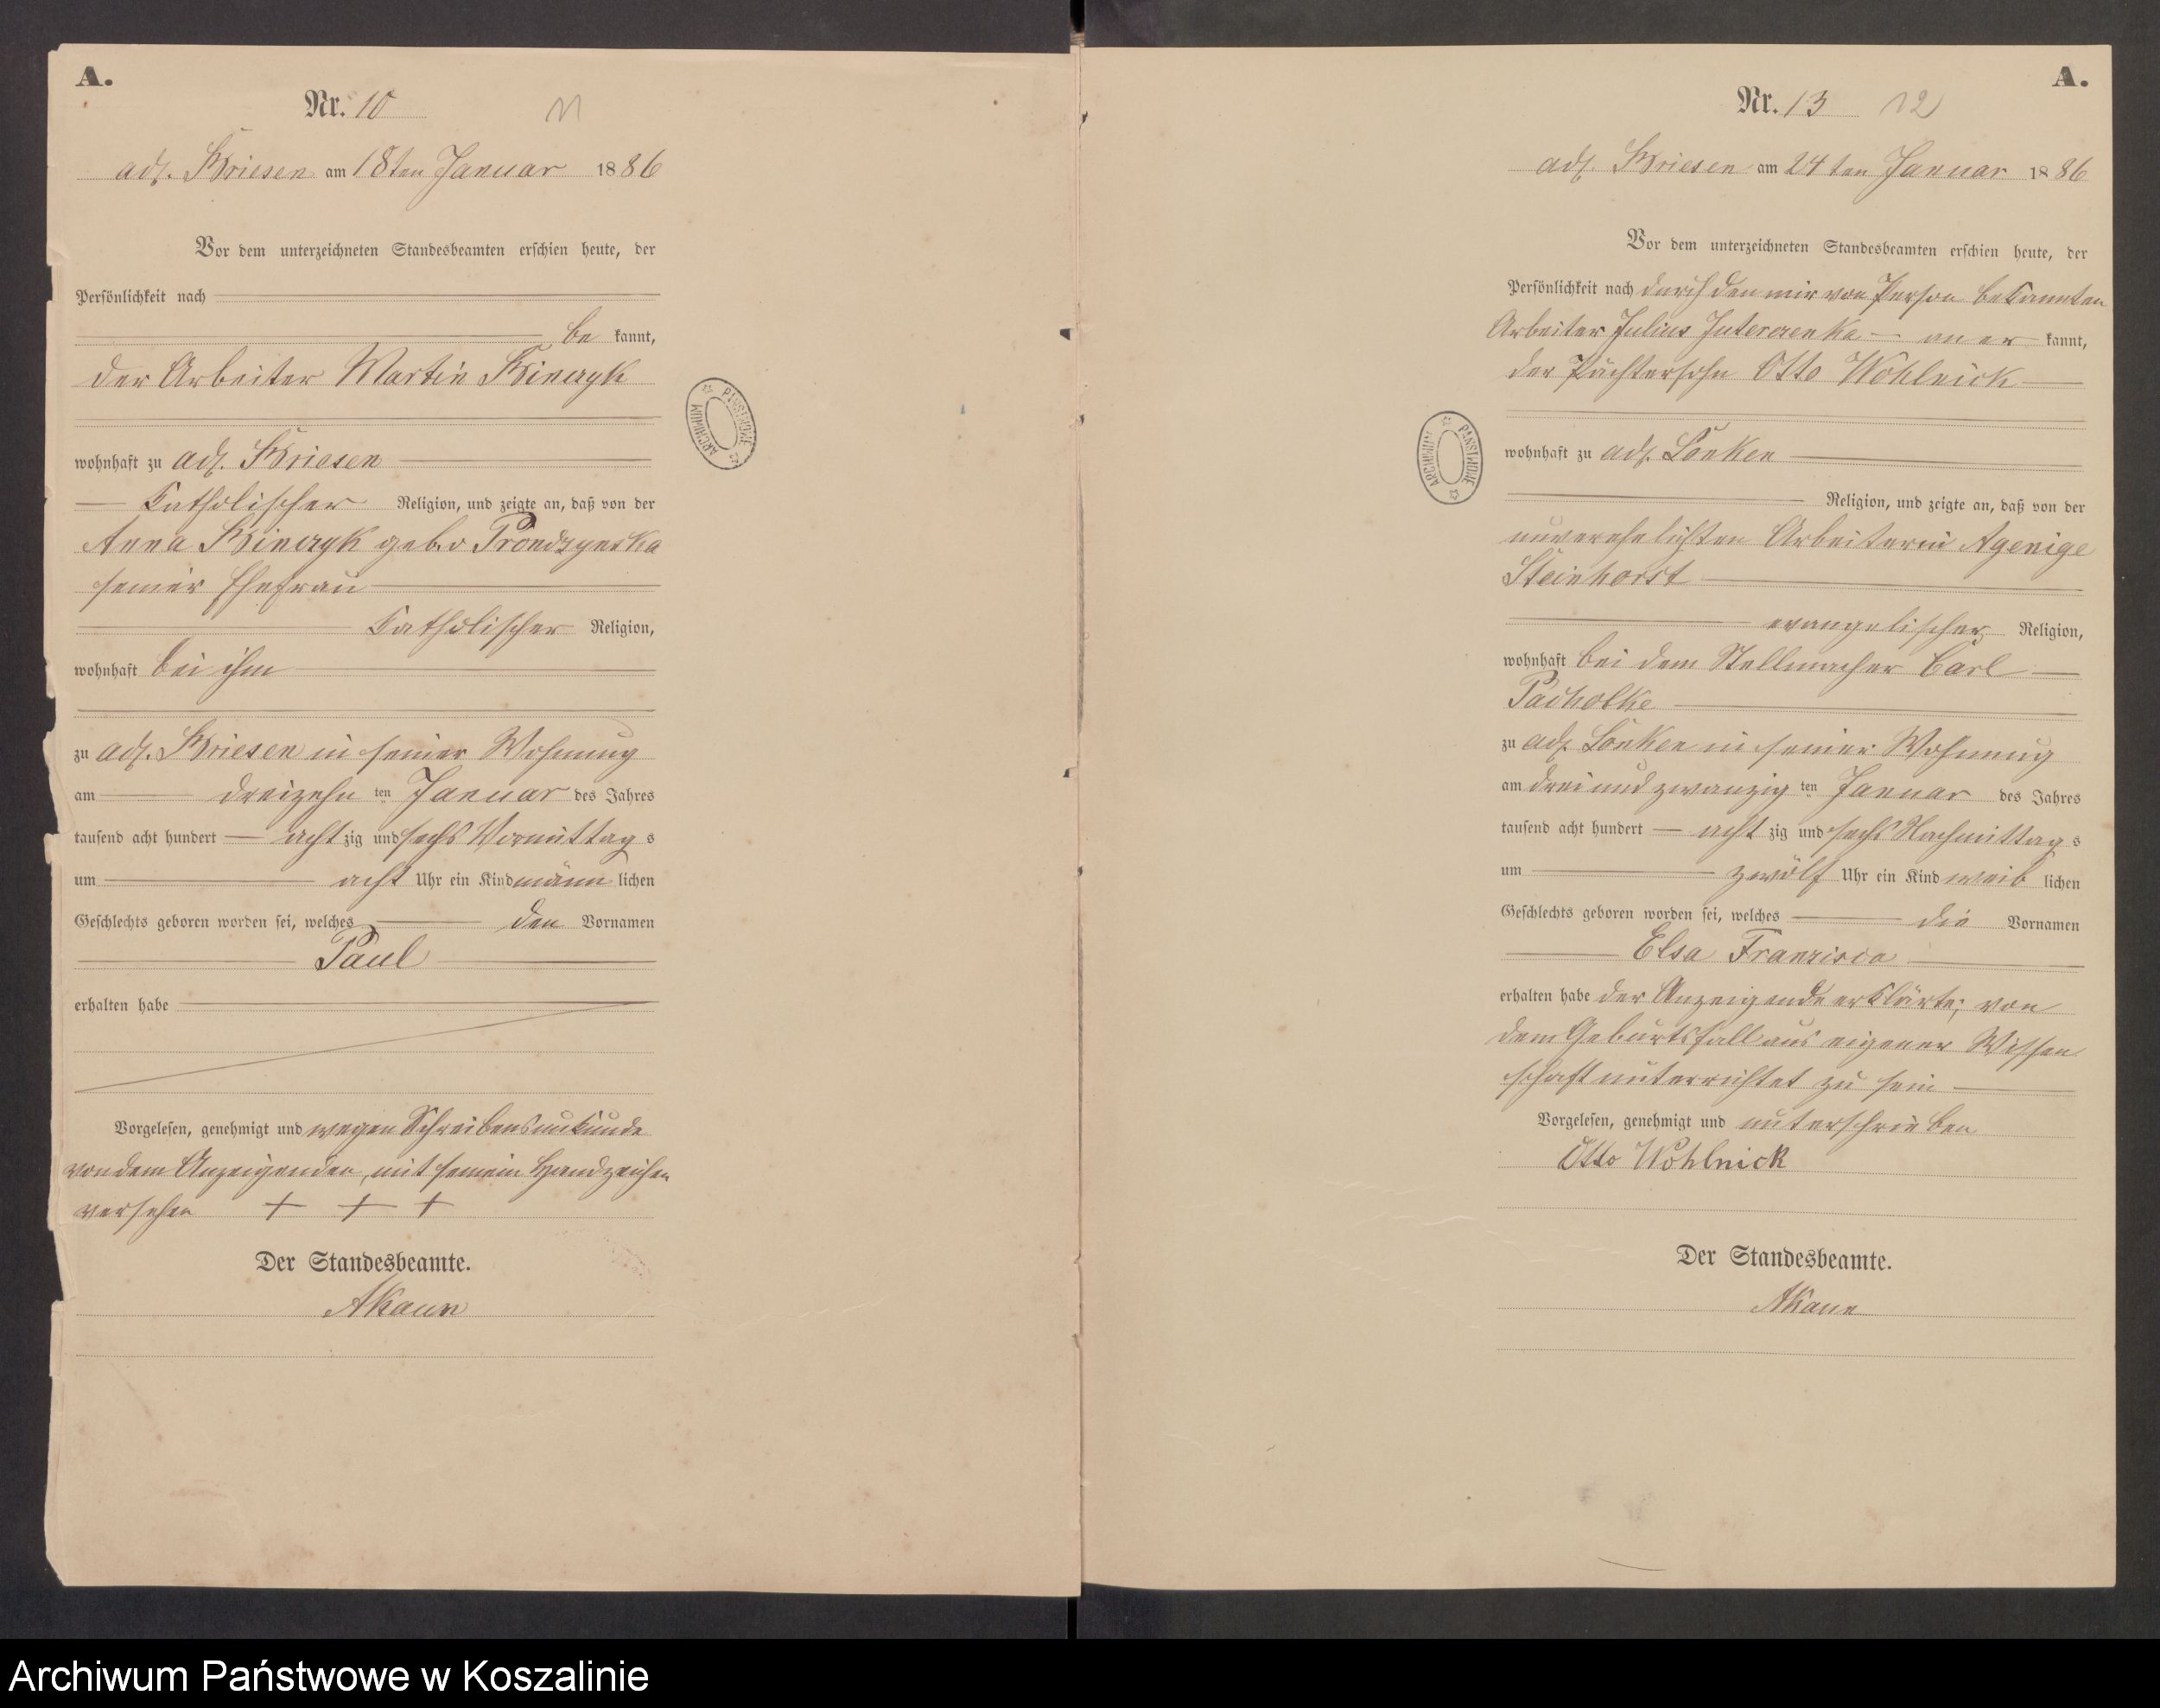 A.
Nr. 10 11
adl. Briesen am 18ten Januar 1886
Vor dem unterzeichneten Standesbeamten erschien heute, der
Persönlichkeit nach
be kannt,
der Arbeiter Martin
wohnhaft zu adl. Briesen
Katholischer Religion, und zeigte an, daß von der
Anna geb. v Prondzynska
seiner Ehefrau
Katholischer Religion,
wohnhaft bei ihm
zu adl. Briesen in seiner Wohnung
am dreizehn ten Januar des Jahres
tausend acht hundert acht zig und sechs Vormittag s
um acht Uhr ein Kind männ lichen
Geschlechts geboren worden sei, welches den Vornamen
Paul
erhalten habe
Vorgelesen, genehmigt und wegen Schreibensunkunde
von dem Anzeigenden, mit seinem Handzeichen
versehen + + +
Der Standesbeamte.
AKaun
ARCHIWUM PAŃSTWOWE
A.
Nr. 13 12
adl. Briesen am 24ten Januar 1886
Vor dem unterzeichneten Standesbeamten erschien heute, der
Persönlichkeit nach durch den mir von Person bekannten
Arbeiter Julius an er kannt,
der Pächtersohn Otto Wohlnick
wohnhaft zu adl. Lonken
Religion, und zeigte an, daß von der
unverehelichten Arbeiterin
Steinhorst
evangelischer Religion,
wohnhaft bei dem Stellmacher Carl
Pacholke
zu adl. Lonken in seiner Wohnung
am drei und zwanzig ten Januar des Jahres
tausend acht hundert acht zig und sechs Nachmittag s
um zwölf Uhr ein Kind weib lichen
Geschlechts geboren worden sei, welches die Vornamen
Elsa Franzisca
erhalten habe der Anzeigende erklärte, von
dem Geburtsfall aus eigener Wissen
schaft unterrichtet zu sein
Vorgelesen, genehmigt und unterschrieben
Otto Wohlnick
Der Standesbeamte.
AKaun
ARCHIWUM PAŃSTWOWE
Archiwum Państwowe w Koszalinie